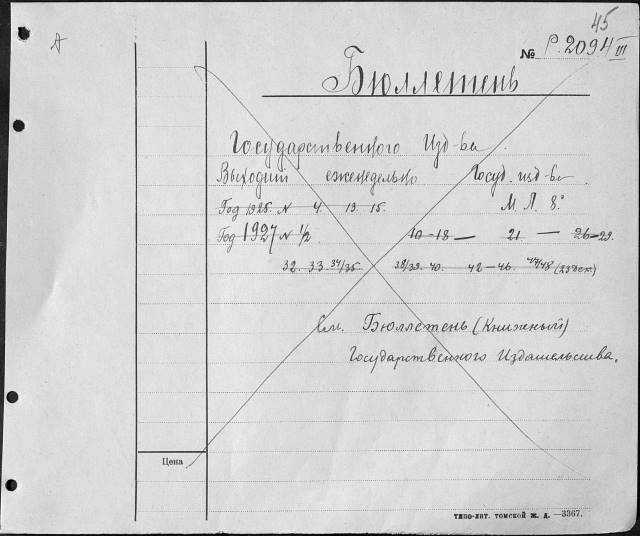 45
А
№ Р.2094 III
Бюллетень
Государственного Изд-ва.
Выходит еженедельно Госуд. изд-во
Год 1925. N 4. 13. 15. М. Л. 8°
Год 1927 N 1/2 10-18 — 21 — 26-29.
32. 33. 34/35. 38/39. 40. 42-46. 47/48 (23 дек)
См. Бюллетень (Книжный)
Государственного Издательства.
Цена
ТИПО-ЛИТ. ТОМСКОЙ Ж. Д. —3367.